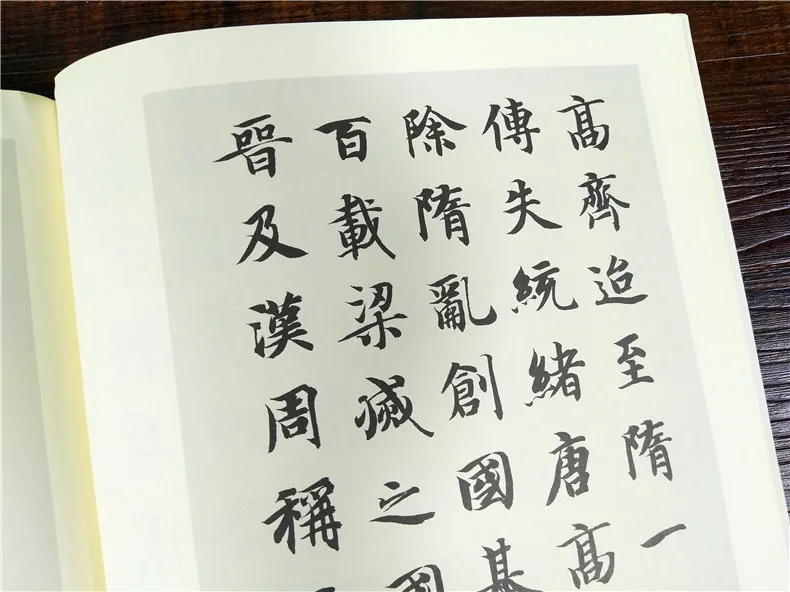 髙齊迨至隋一
傳失統緒唐髙
除隋亂創國基
百載梁滅之國
晉及漢周稱